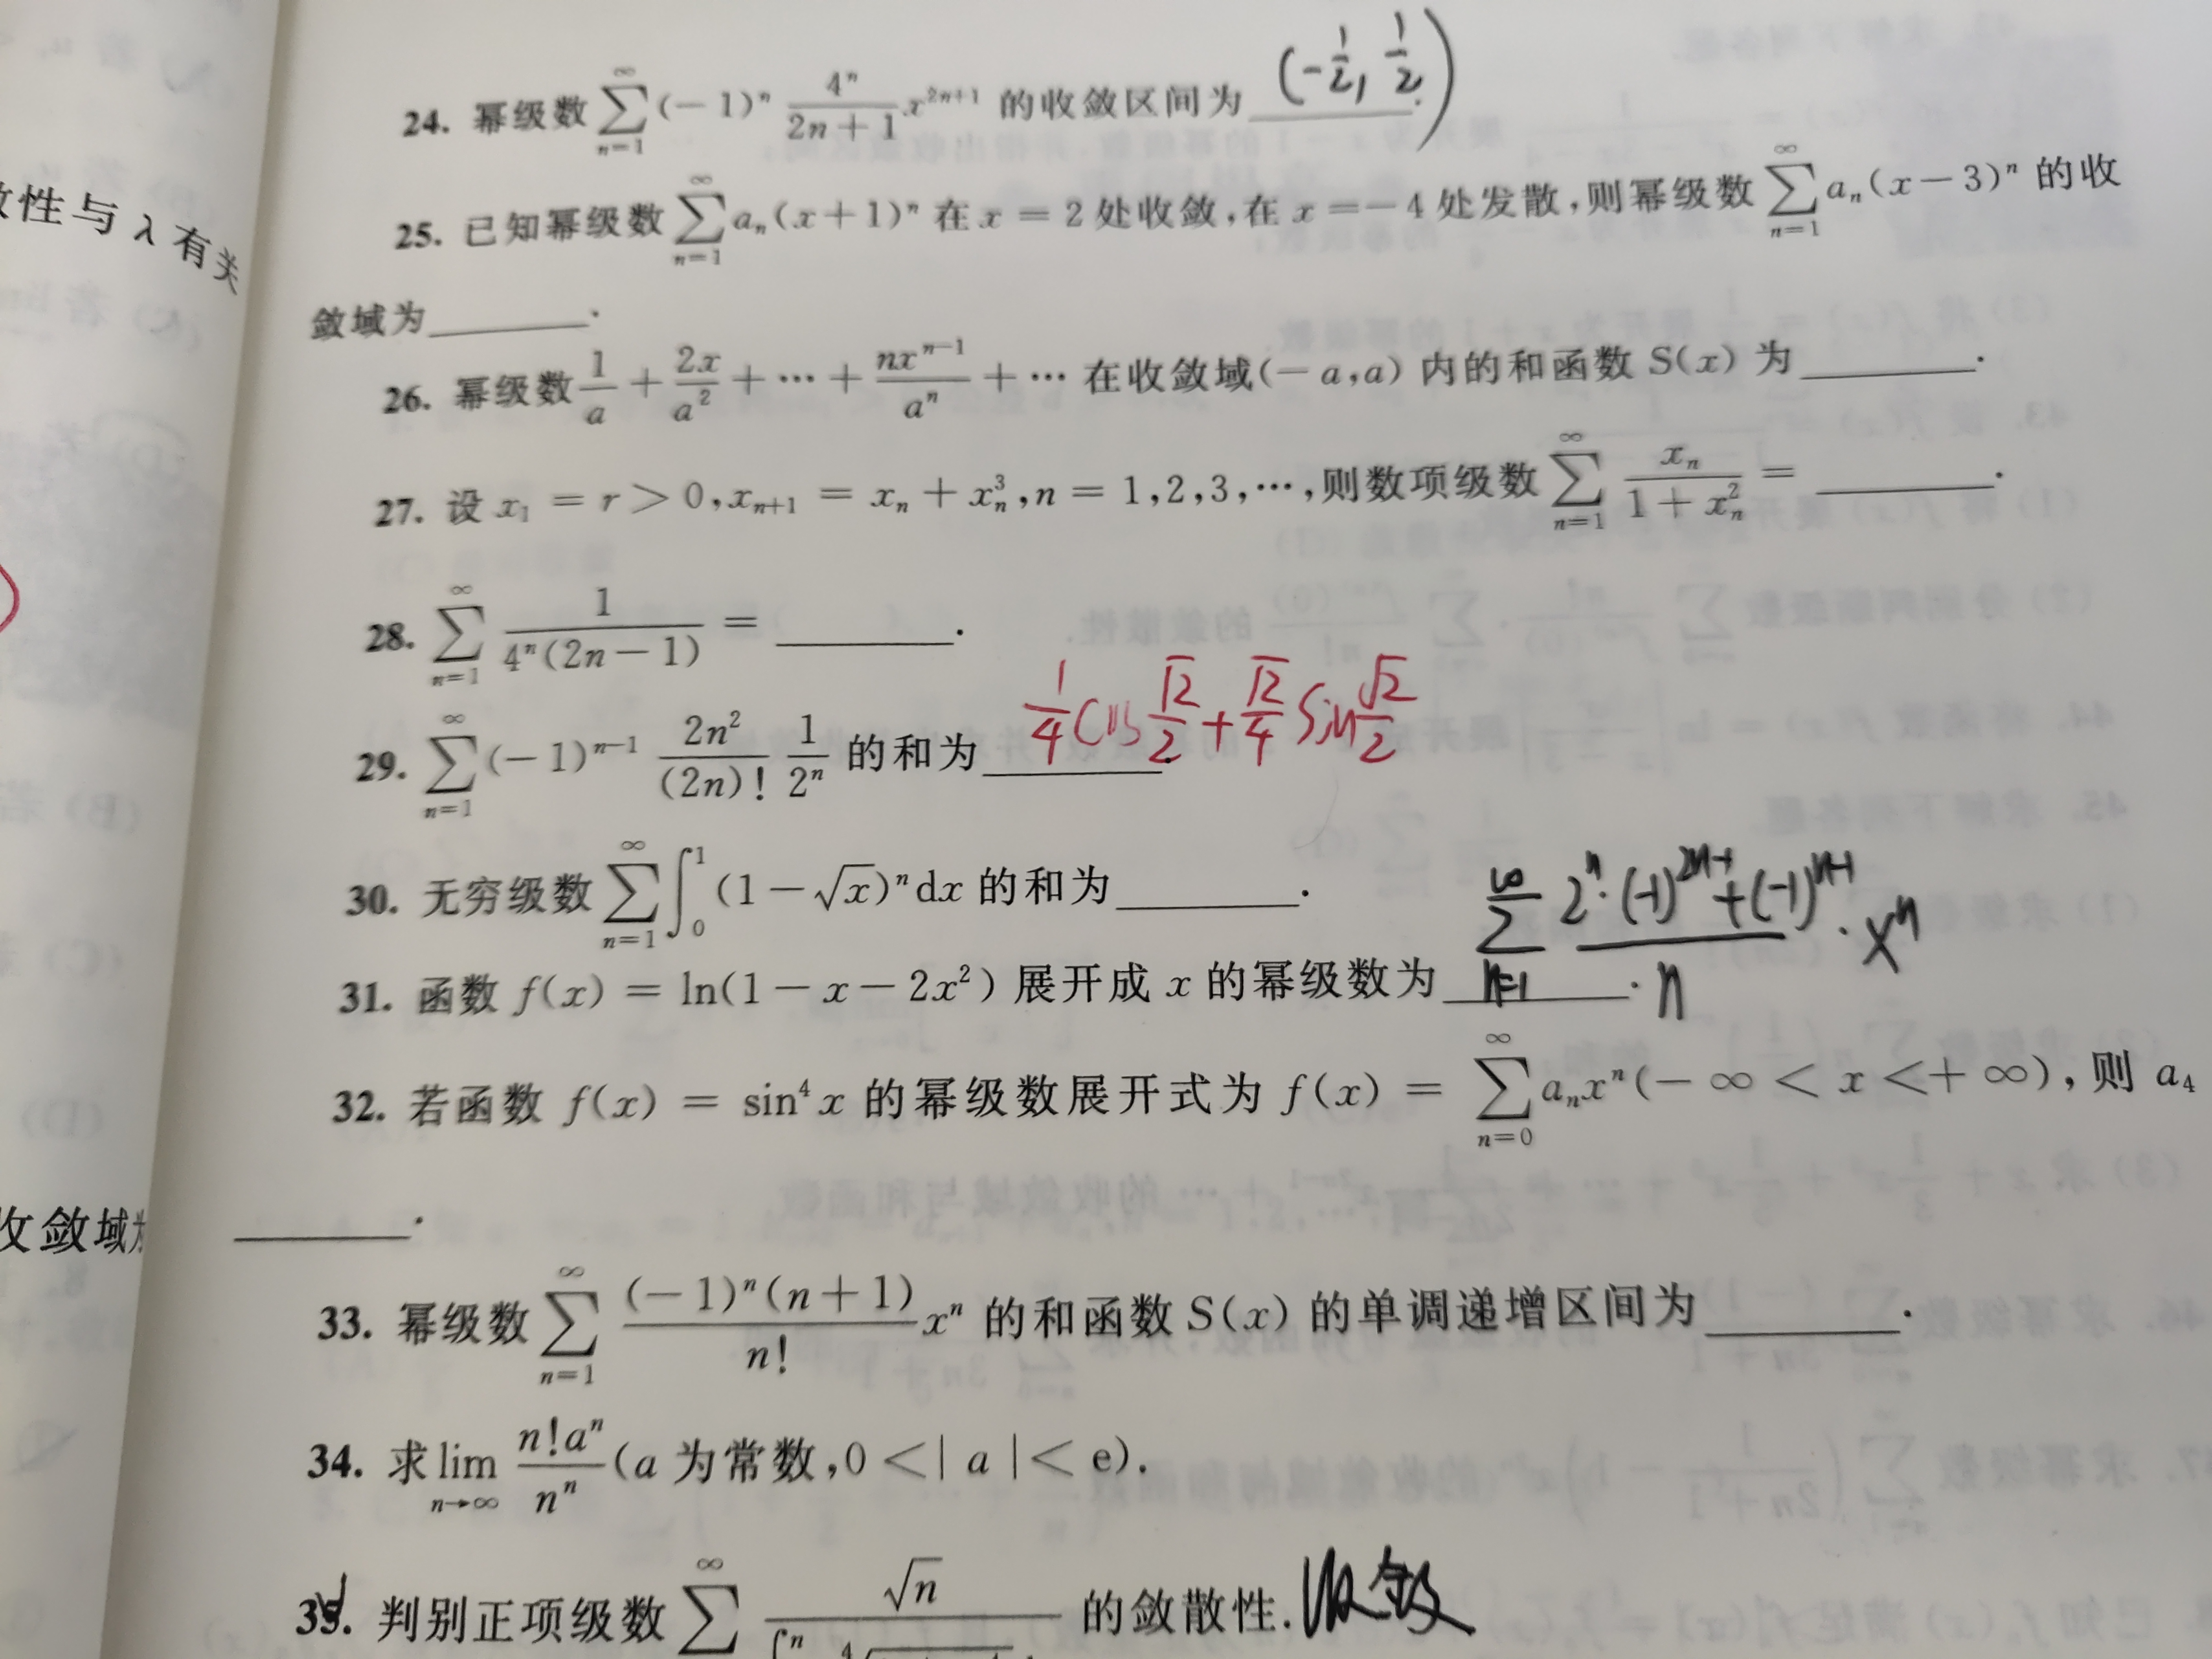 24. 幂级数 $\sum_{n=1}^{\infty}(-1)^n\frac{4^n}{2n+1}x^{2n+1}$ 的收敛区间为 $(-\frac{1}{2},\frac{1}{2})$.
25. 已知幂级数 $\sum_{n=1}^{\infty}a_n(x+1)^n$ 在 $x=2$ 处收敛,在 $x=-4$ 处发散,则幂级数 $\sum_{n=1}^{\infty}a_n(x-3)^n$ 的收
敛域为______.
26. 幂级数 $\frac{1}{a}+\frac{2x}{a^2}+\cdots+\frac{nx^{n-1}}{a^n}+\cdots$ 在收敛域$(-a,a)$ 内的和函数 $S(x)$ 为______.
27. 设 $x_1=r>0,x_{n+1}=x_n+x_n^3,n=1,2,3,\cdots,$则数项级数 $\sum_{n=1}^{\infty}\frac{x_n}{1+x_n^2}=$______.
28. $\sum_{n=1}^{\infty}\frac{1}{4^n(2n-1)}=$______.
29. $\sum_{n=1}^{\infty}(-1)^{n-1}\frac{2n^2}{(2n)!}\frac{1}{2^n}$ 的和为 $\frac{1}{4}\cos\frac{\sqrt{2}}{2}+\frac{\sqrt{2}}{4}\sin\frac{\sqrt{2}}{2}$.
30. 无穷级数 $\sum_{n=1}^{\infty}\int_0^1(1-\sqrt{x})^n\mathrm{d}x$ 的和为______.
31. 函数 $f(x)=\ln(1-x-2x^2)$ 展开成 $x$ 的幂级数为 $\sum_{n=1}^{\infty}\frac{2^n\cdot(-1)^{2n-1}+(-1)^{n-1}}{n}\cdot x^n$.
32. 若函数 $f(x)=\sin^4 x$ 的幂级数展开式为 $f(x)=\sum_{n=0}^{\infty}a_nx^n(-\infty<x<+\infty)$,则 $a_4$
______.
33. 幂级数 $\sum_{n=1}^{\infty}\frac{(-1)^n(n+1)}{n!}x^n$ 的和函数 $S(x)$ 的单调递增区间为______.
34. 求 $\lim_{n\to\infty}\frac{n!a^n}{n^n}$($a$ 为常数,$0<|a|<\mathrm{e}$).
35. 判别正项级数 $\sum^{\infty}\frac{\sqrt{n}}{\int^n\sqrt[4]{\ }}$ 的敛散性. 收敛
性与 λ 有关
收敛域